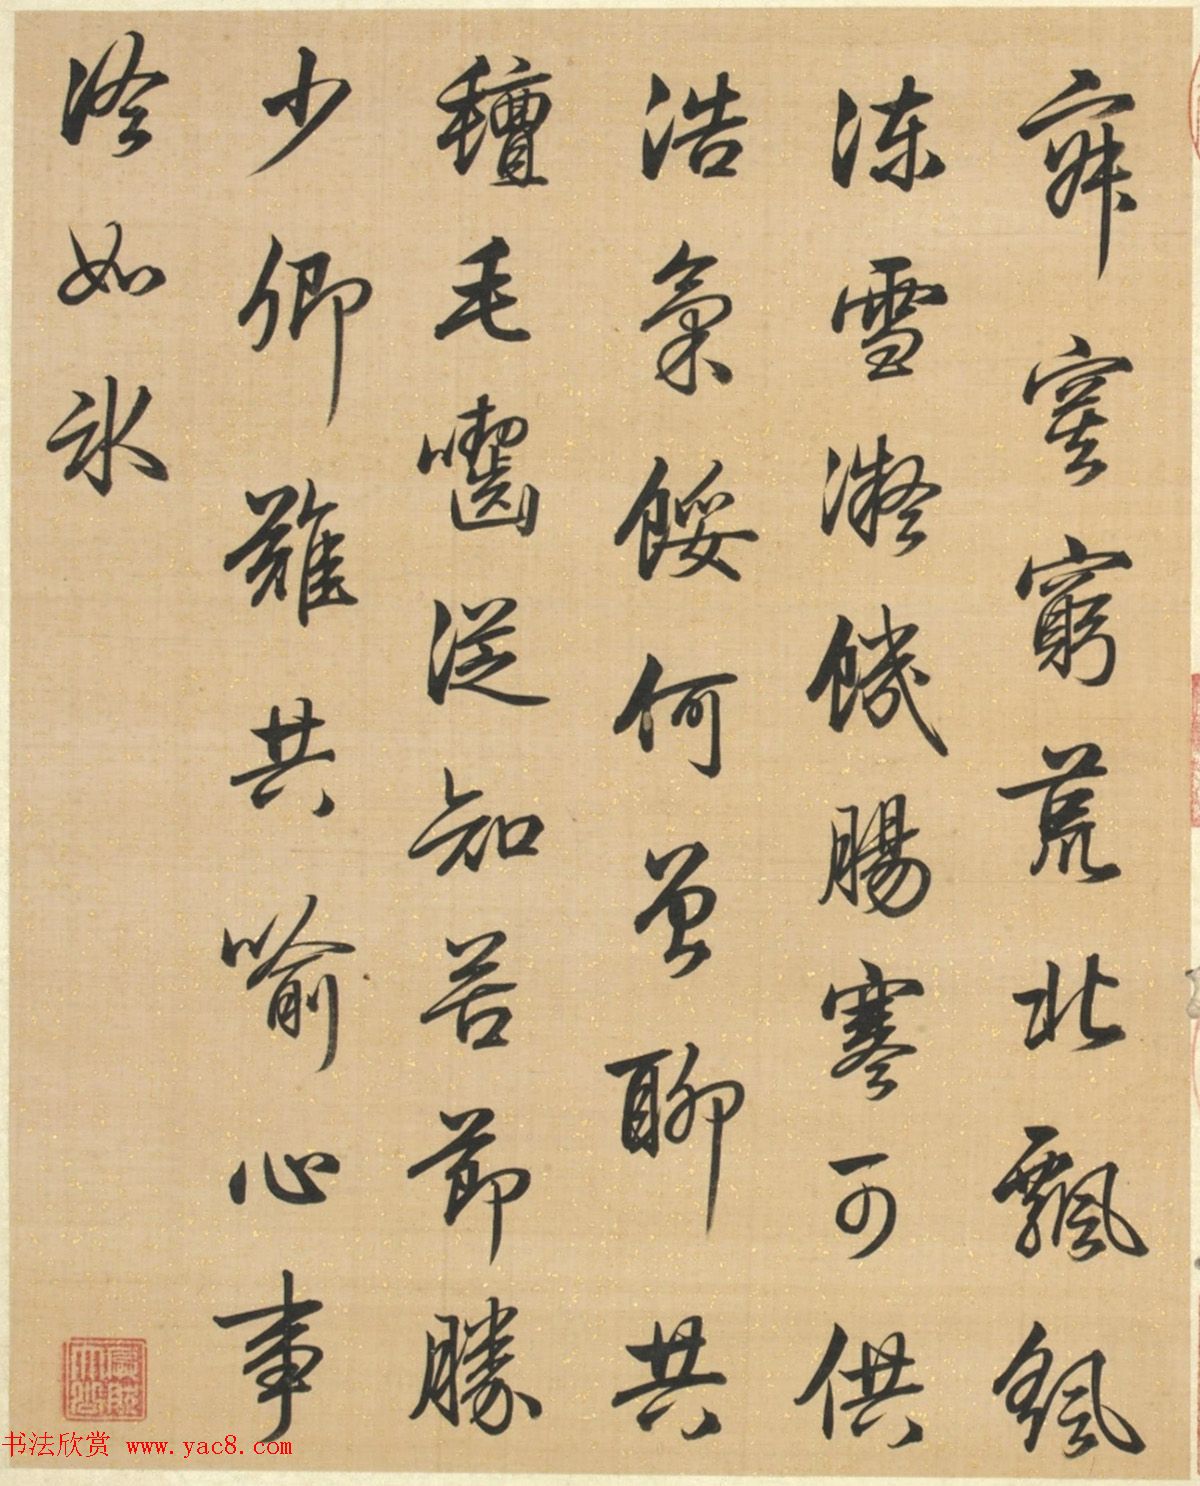 寂寞窮荒北飄颻
凍雪凝饑腸寒可供
浩氣餒何曾聊共
氈毛囓從知苦節勝
少卿難共喻心事
冷如氷
书法欣赏 www.yac8.com